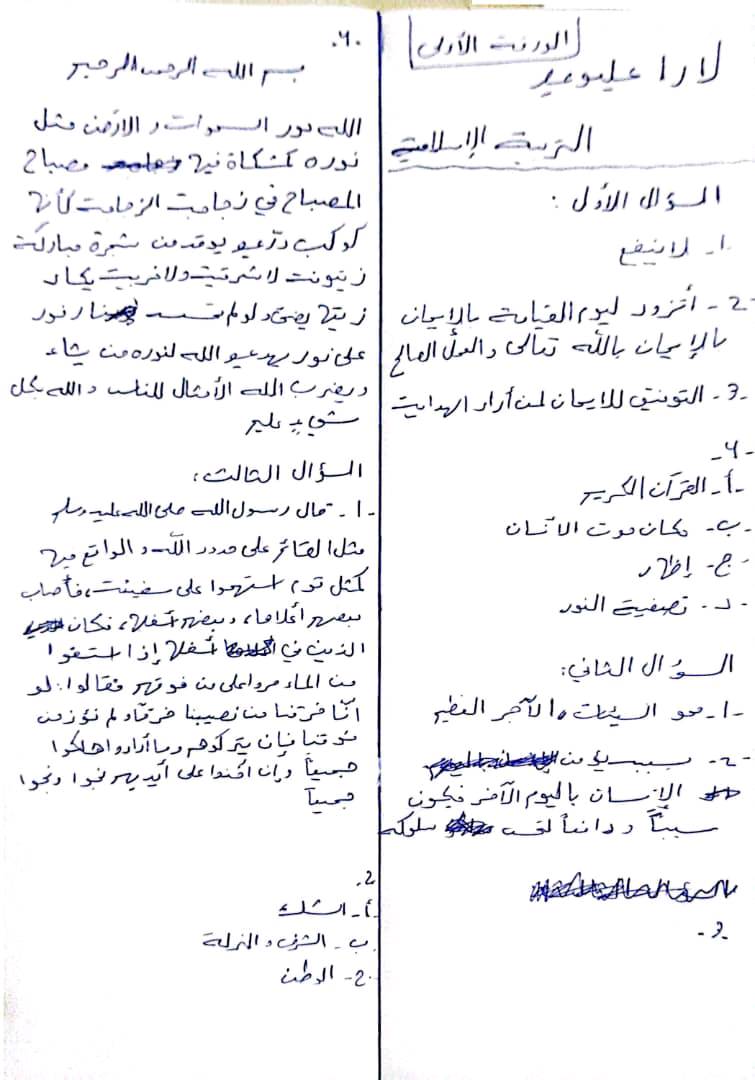 الورقة الأولى
لارا علي وعيد
التربية الإسلامية
السؤال الأول :
1- لا ينفع
2- أتزود ليوم القيامة بالإيمان
بالإيمان بالله تعالى والعمل الصالح
3- التوفيق للايمان لمن أراد الهداية
4-
أ- القرآن الكريم
ب- مكان موت الانسان
ج- إظهار
د- تصفية النور
السؤال الثاني:
1- محو السيئات والآجر العظيم
2- بسبب يؤمن
الإنسان باليوم الآخر فيكون
سبباً ودافعاً سلوكه
3-
6.
بسم الله الرحمن الرحيم
الله نور السموات والارض مثل
نوره كمشكاة فيها مصباح
المصباح في زجاجة الزجاجة كأنها
كوكب دري يوقد من شجرة مباركة
زيتونة لا شرقية ولا غربية يكاد
زيتها يضئ ولو لم تمسسه نار نور
على نور يهدي الله لنوره من يشاء
ويضرب الله الأمثال للناس والله بكل
شيء عليم
السؤال الثالث:
1- قال رسول الله صلى الله عليه وسلم
مثل القائم على حدود الله والواقع فيها
كمثل قوم استهموا على سفينة، فأصاب
بعضهم أعلاها، وبعضهم أسفلها، فكان
الذين في أسفلها إذا استقوا
من الماء مروا على من فوقهم فقالوا: لو
انّا خرقنا من نصيبنا خرقاً ولم نؤذ من
فوقنا فإن يتركوهم وما أرادوا هلكوا
جميعاً وإن أخذوا على أيديهم نجوا ونجوا
جميعاً
2.
أ- الشك
ب- الشرف والمنزلة
2- الوطن